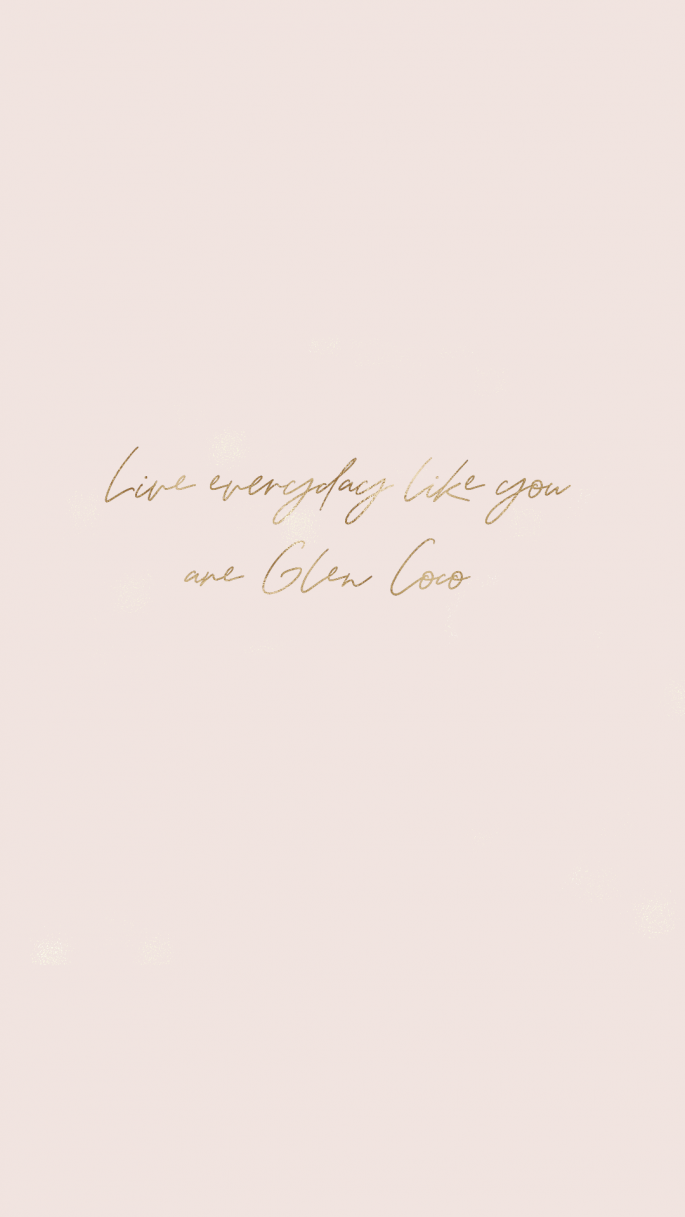 Live everyday like you
are Glen Coco